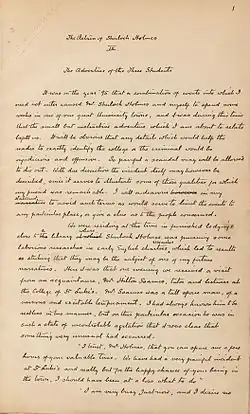 1
The Return of Sherlock Holmes
IX
The Adventure of the Three Students
It was in the year '95 that a combination of events into which I
need not enter caused Mr. Sherlock Holmes and myself to spend some
weeks in one of our great University towns, and it was during this time
that the small but instructive adventure which I am about to relate
befell us. It will be obvious that any details which would help the
reader to exactly identify the college or the criminal would be
injudicious and offensive. So painful a scandal may well be allowed
to die out. With due discretion the incident itself may however be
described, since it serves to illustrate some of those qualities for which
my friend was remarkable. I will endeavour in my
statement to avoid such terms as would serve to limit the events to
any particular place, or give a clue as to the people concerned.
We were residing at the time in furnished lodgings
close to a library where Sherlock Holmes was pursuing some
laborious researches in early English charters which led to results
so striking that they may be the subject of one of my future
narratives. Here it was that one evening we received a visit
from an acquaintance, Mr. Hilton Soames, tutor and lecturer at
the College of St. Luke's. Mr. Soames was a tall spare man, of a
nervous and excitable temperament. I had always known him to be
restless in his manner, but on this particular occasion he was in
such a state of uncontrollable agitation that it was clear that
something very unusual had occurred.
"I trust, Mr. Holmes, that you can spare me a few
hours of your valuable time. We have had a very painful incident
at St. Luke's and really but for the happy chance of your being in
the town, I should have been at a loss what to do."
"I am very busy just now, and I desire no